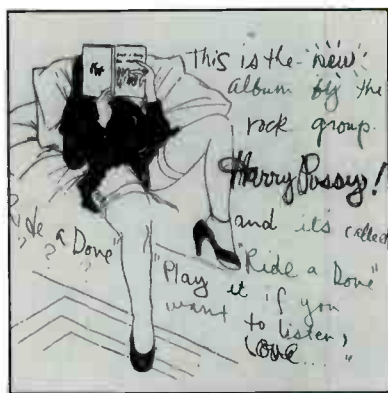 This is the "new"
album by the
rock group.
Harry Pussy!
and its called
"Ride a Dove"
"Play it if you
want to listen,
Love.... "
Ride a Dove"
? ? ?